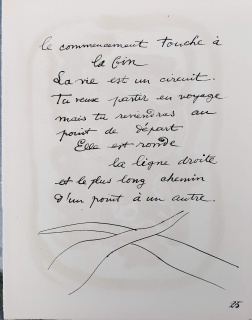 le commencement touche à
la fin
La vie est un circuit.
Tu veux partir en voyage
mais tu reviendras au
point de départ
Elle est ronde
la ligne droite
et le plus long chemin
D'un point à un autre.
25